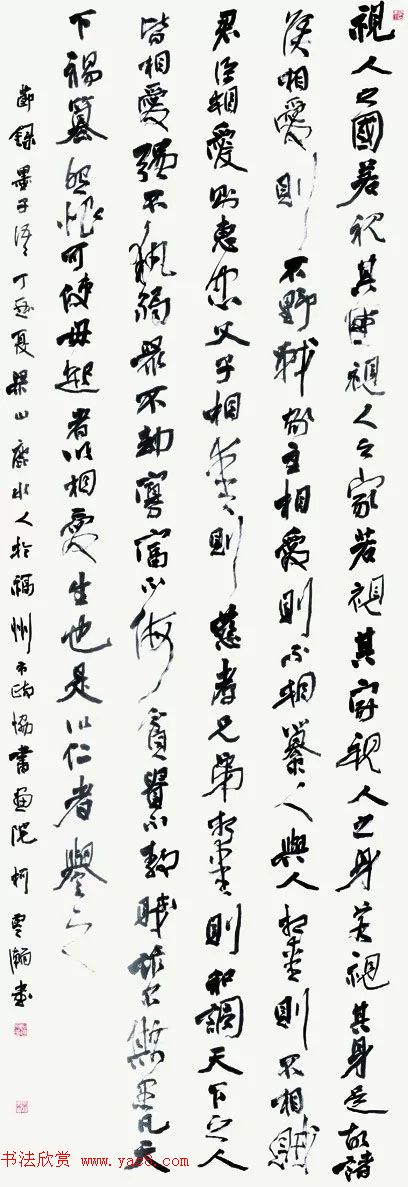 視人之國若視其國視人之家若視其家視人之身若視其身是故諸
侯相愛則不野戰家主相愛則不相篡人與人相愛則不相賊
君臣相愛則惠忠父子相愛則慈孝兄弟相愛則和調天下之人
皆相愛強不執弱眾不劫寡富不侮貧貴不敖賤詐不欺愚凡天
下禍篡怨恨可使毋起者以相愛生也是以仁者譽之
節錄墨子語丁酉夏梁山鹿水人於福州市政協書畫院柯雲瀚書
书法欣赏 www.yac8.com